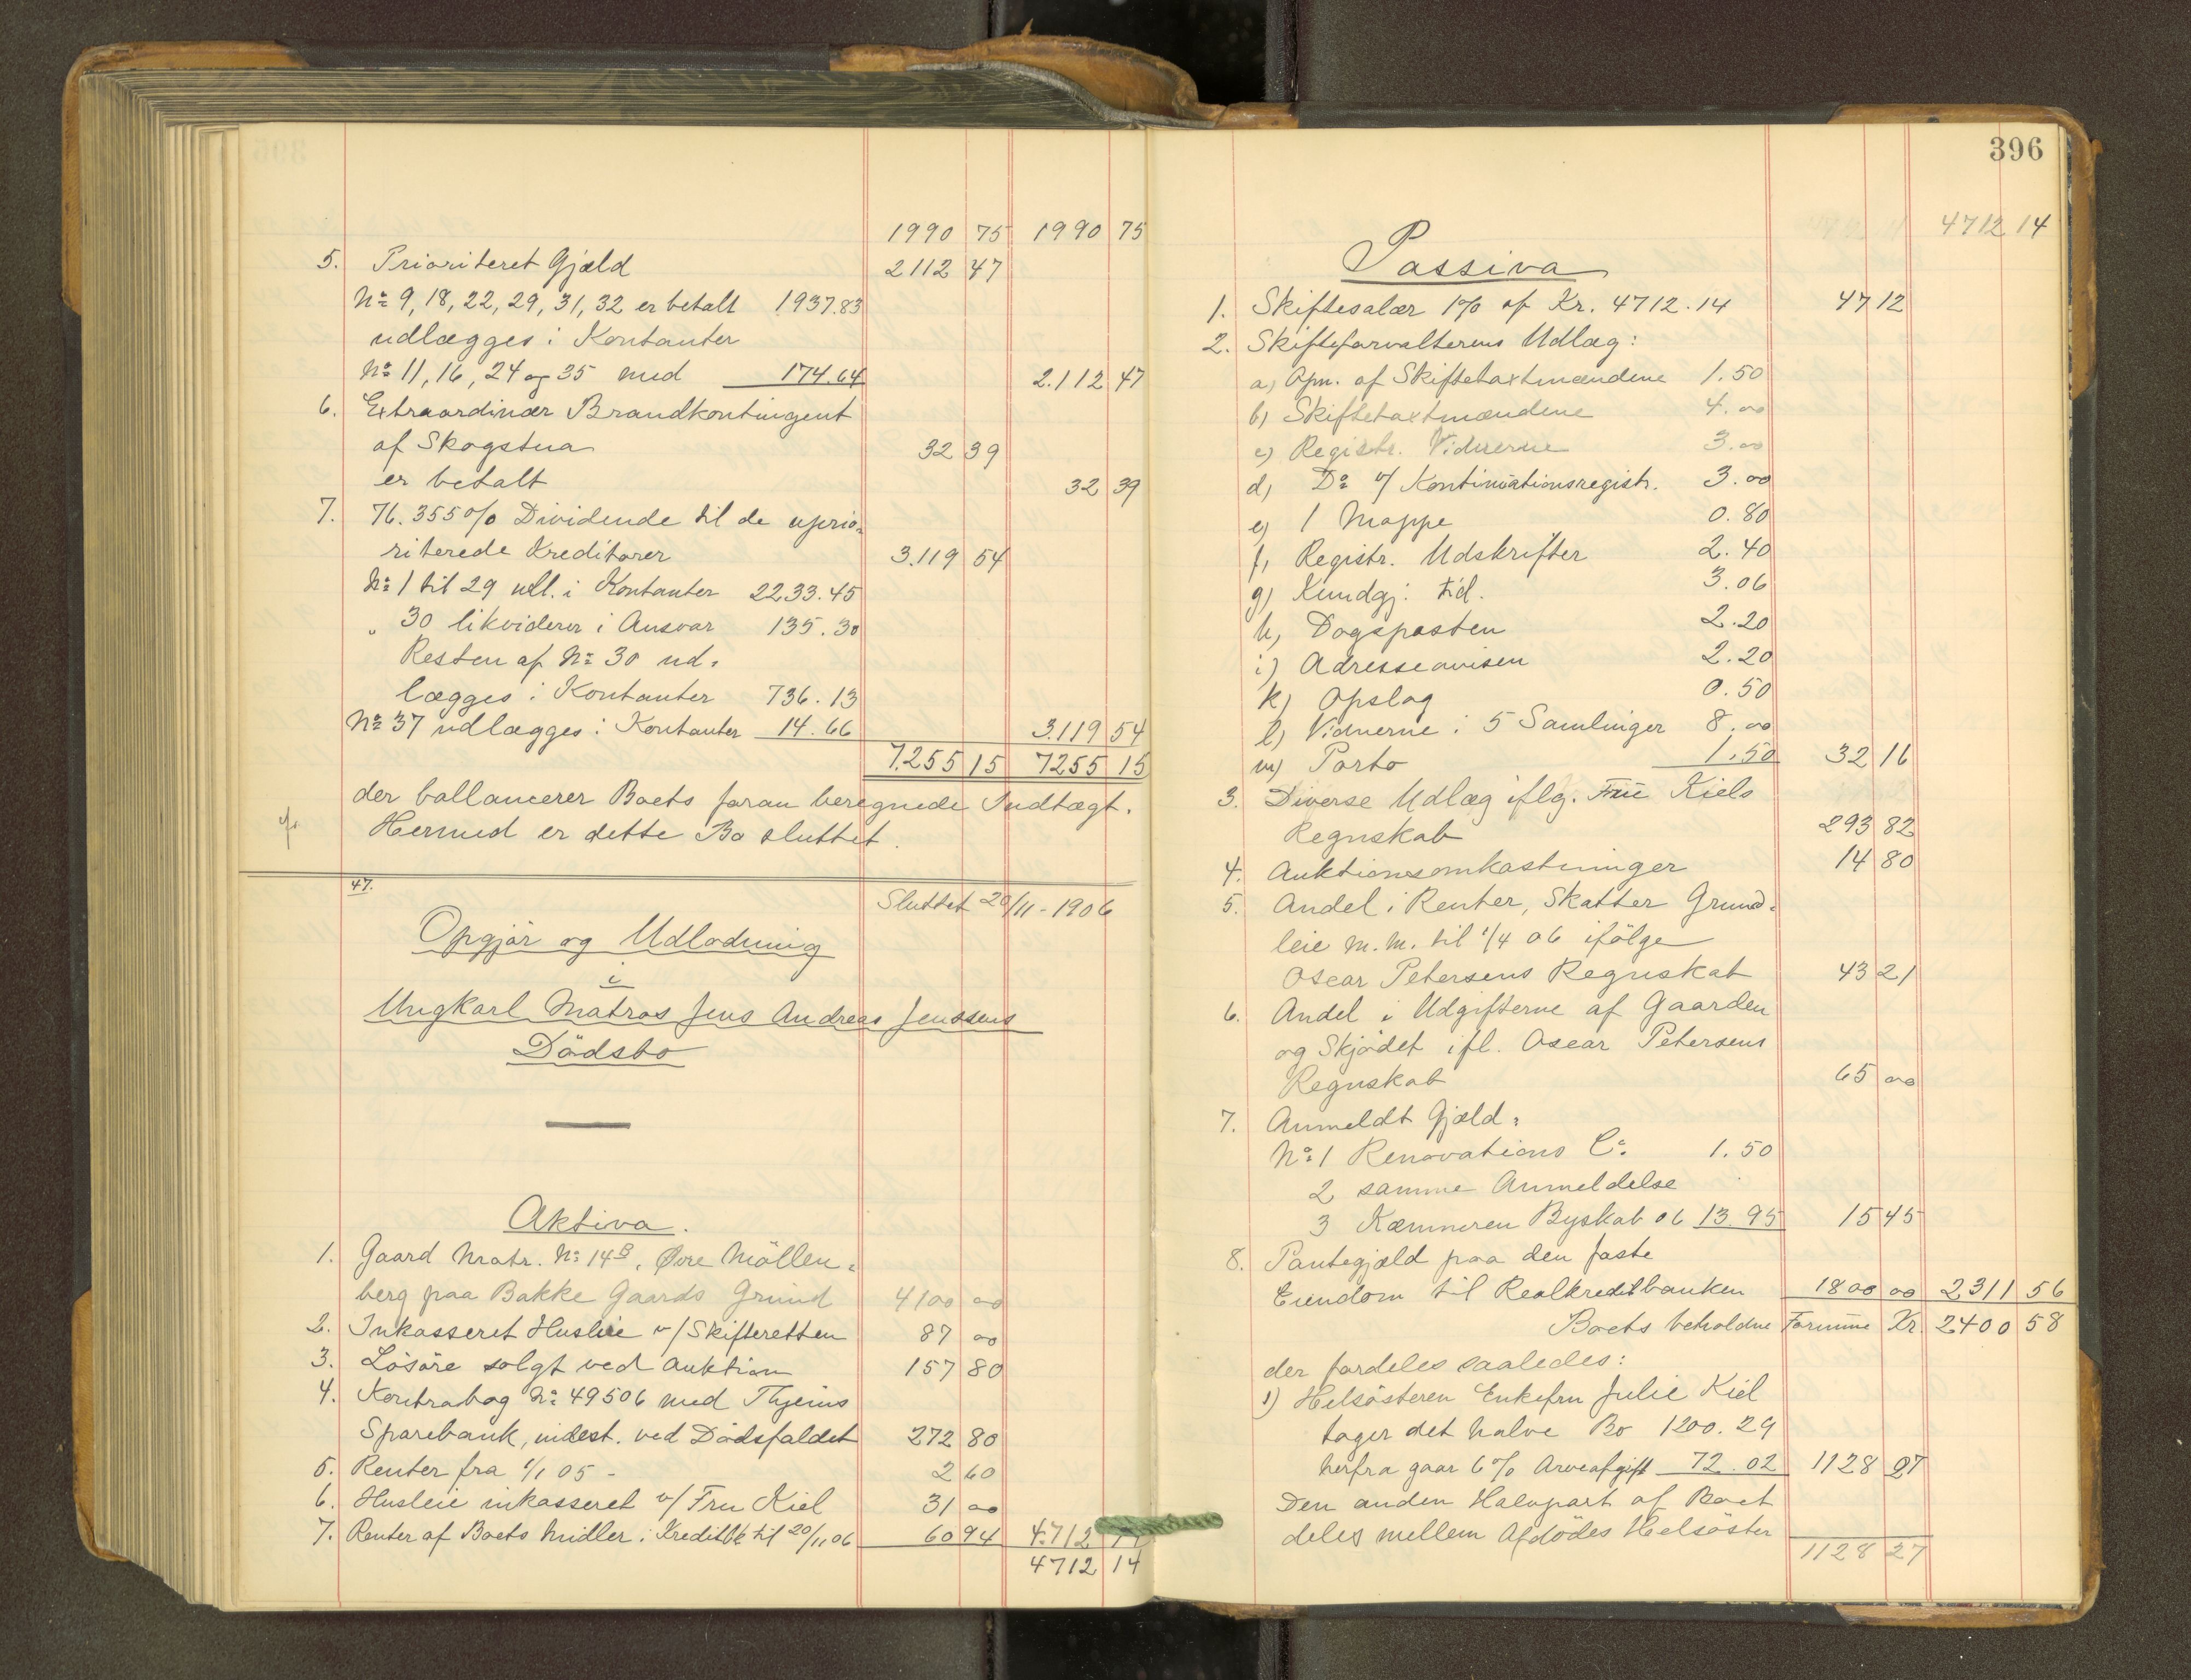 1990 75 1990 75
5. Prioriteret Gjæld 2112 47
No 9, 18, 22, 29, 31, 32 er betalt 1937.83
udlægges i Kontanter
No 11, 16, 24 og 35 med 174.64 2.112 47
6. Extraordinær Brandkontingent
af Skogstua 32 39
er betalt 32 39
7. 76.355 % Dividende til de uprio-
riterede Kreditorer 3.119 54
No 1 til 29 udl. i Kontanter 2233.45
" 30 likviderer i Ansvar 135.30
Resten af No 30 ud-
lægges i Kontanter 736.13
No 37 udlægges i Kontanter 14.66 3.119 54
7.255 15 7255 15
der ballancerer Boets foran beregnede Indtægt.
Hermed er dette Bo sluttet.
47.
Sluttet 20/11-1906
Opgjør og Udlodning
i
Ungkarl Matros Jens Andreas Jenssens
Dödsbo
Aktiva.
1. Gaard Matr. No 14B, Øvre Möllen-
berg paa Bakke Gaards Grund 4100 00
2. Inkasseret Husleie v/ Skifteretten 87 00
3. Lösöre solgt ved Auktion 157 80
4. Kontrabog No 49506 med Thjems
Sparebank, indest. ved Dödsfaldet 272 80
5. Renter fra 1/1 05 - 2 60
6. Husleie inkasseret v/ Fru Kiel 31 00
7. Renter af Boets Midler i Kreditbk til 20/11 06 60 94 4.712 14
4712 14
396
4712 14
Passiva
1. Skiftesalær 1% af Kr. 4712.14 47 12
2. Skifteforvalterens Udlæg:
a) Opn. af Skiftetaxtmændene 1.50
b) Skiftetaxtmændene 4.00
c) Registr. Vidnerne 3.00
d) Do v/ Kontinuationsregistr. 3.00
e) 1 Mappe 0.80
f) Registr. Udskrifter 2.40
g) Kundgj. tid. 3.06
h) Dagsposten 2.20
i) Adresseavisen 2.20
k) Opslag 0.50
l) Vidnerne i 5 Samlinger 8.00
m) Porto 1.50 32 16
3. Diverse Udlæg iflg. Frue Kiels
Regnskab 293 82
4. Auktionsomkostninger 14 80
5. Andel i Renter, Skatter Grund-
leie m.m. til 1/4 06 ifölge
Oscar Petersens Regnskab 43 21
6. Andel i Udgifterne af Gaarden
og Skjödet ifl. Oscar Petersens
Regnskab 65 00
7. Anmeldt Gjæld:
No 1 Renovations Co. 1.50
2 samme Anmeldelse
3 Kæmneren Byskat 06 13.95 15 45
8. Pantegjæld paa den faste
Eiendom til Realkreditbanken 1800 00 2311 56
Boets beholdne Formue Kr. 2400 58
der fordeles saaledes:
1) Helsösteren Enkefru Julie Kiel
tager det halve Bo 1200.29
herfra gaar 6% Arveafgift 72.02 1128 27
Den anden Halvpart af Boet
deles mellem Afdödes Helsöster
1128 27